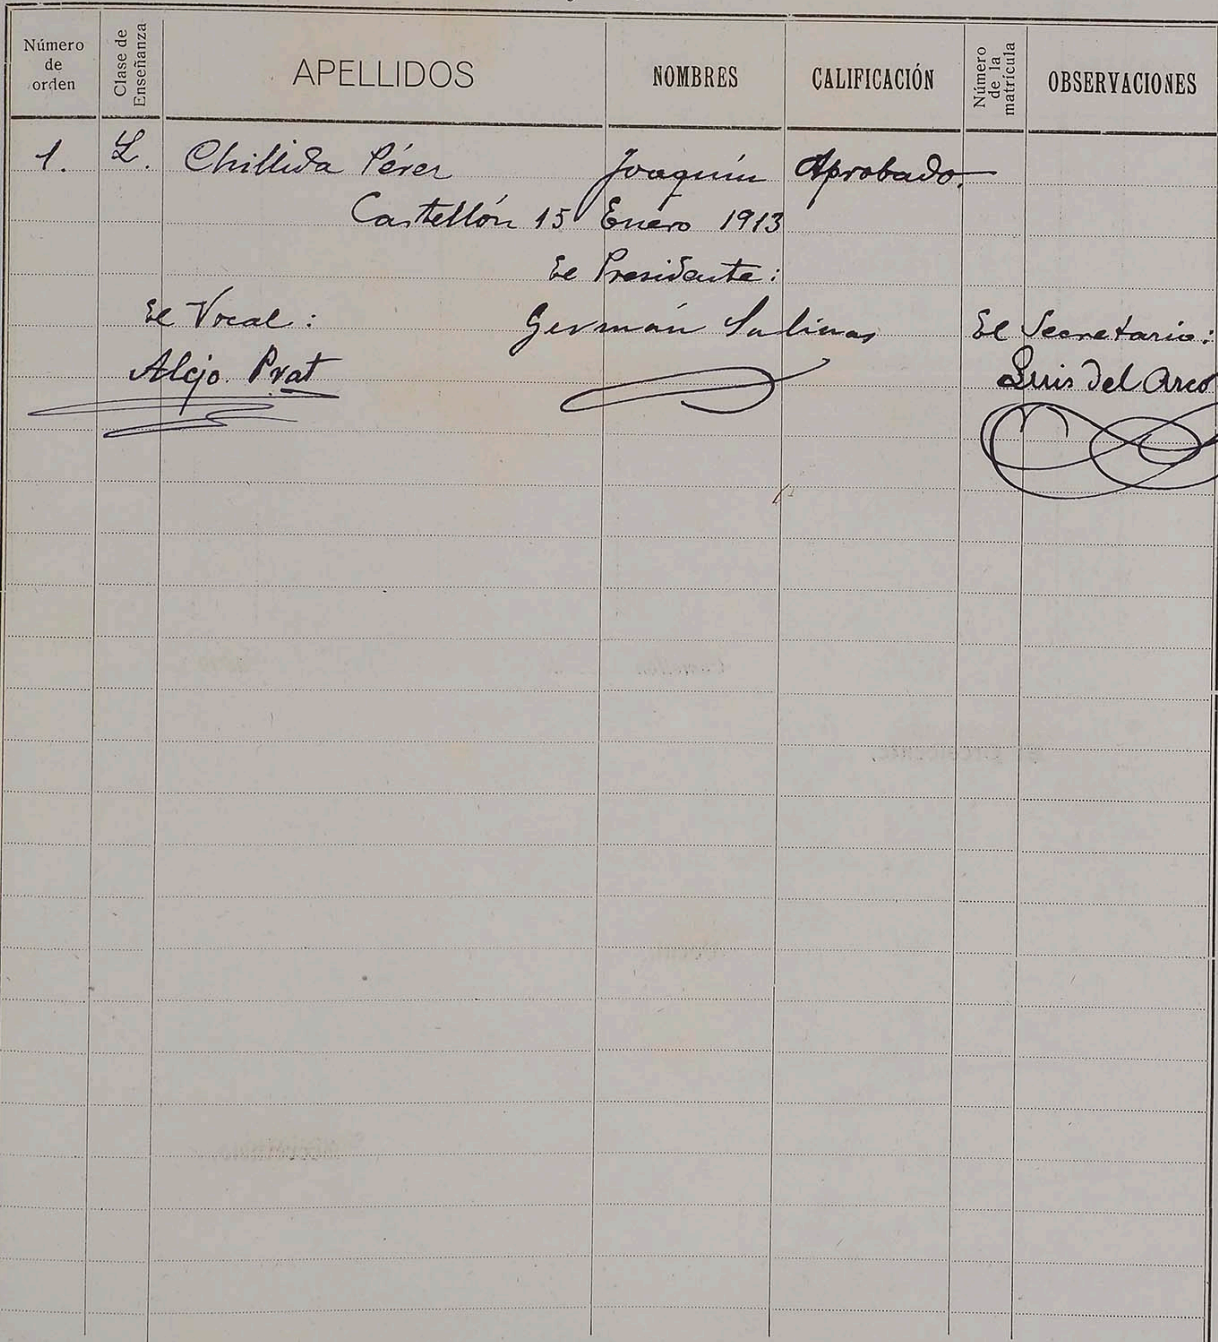 Número de orden Clase de Enseñanza APELLIDOS NOMBRES CALIFICACIÓN Número de la matrícula OBSERVACIONES
1. L. Chillida Pérez Joaquín Aprobado.
Castellón 15 Enero 1913
El Presidente:
El Vocal: Germán Salinas El Secretario:
Alejo Prat Luis del Arco